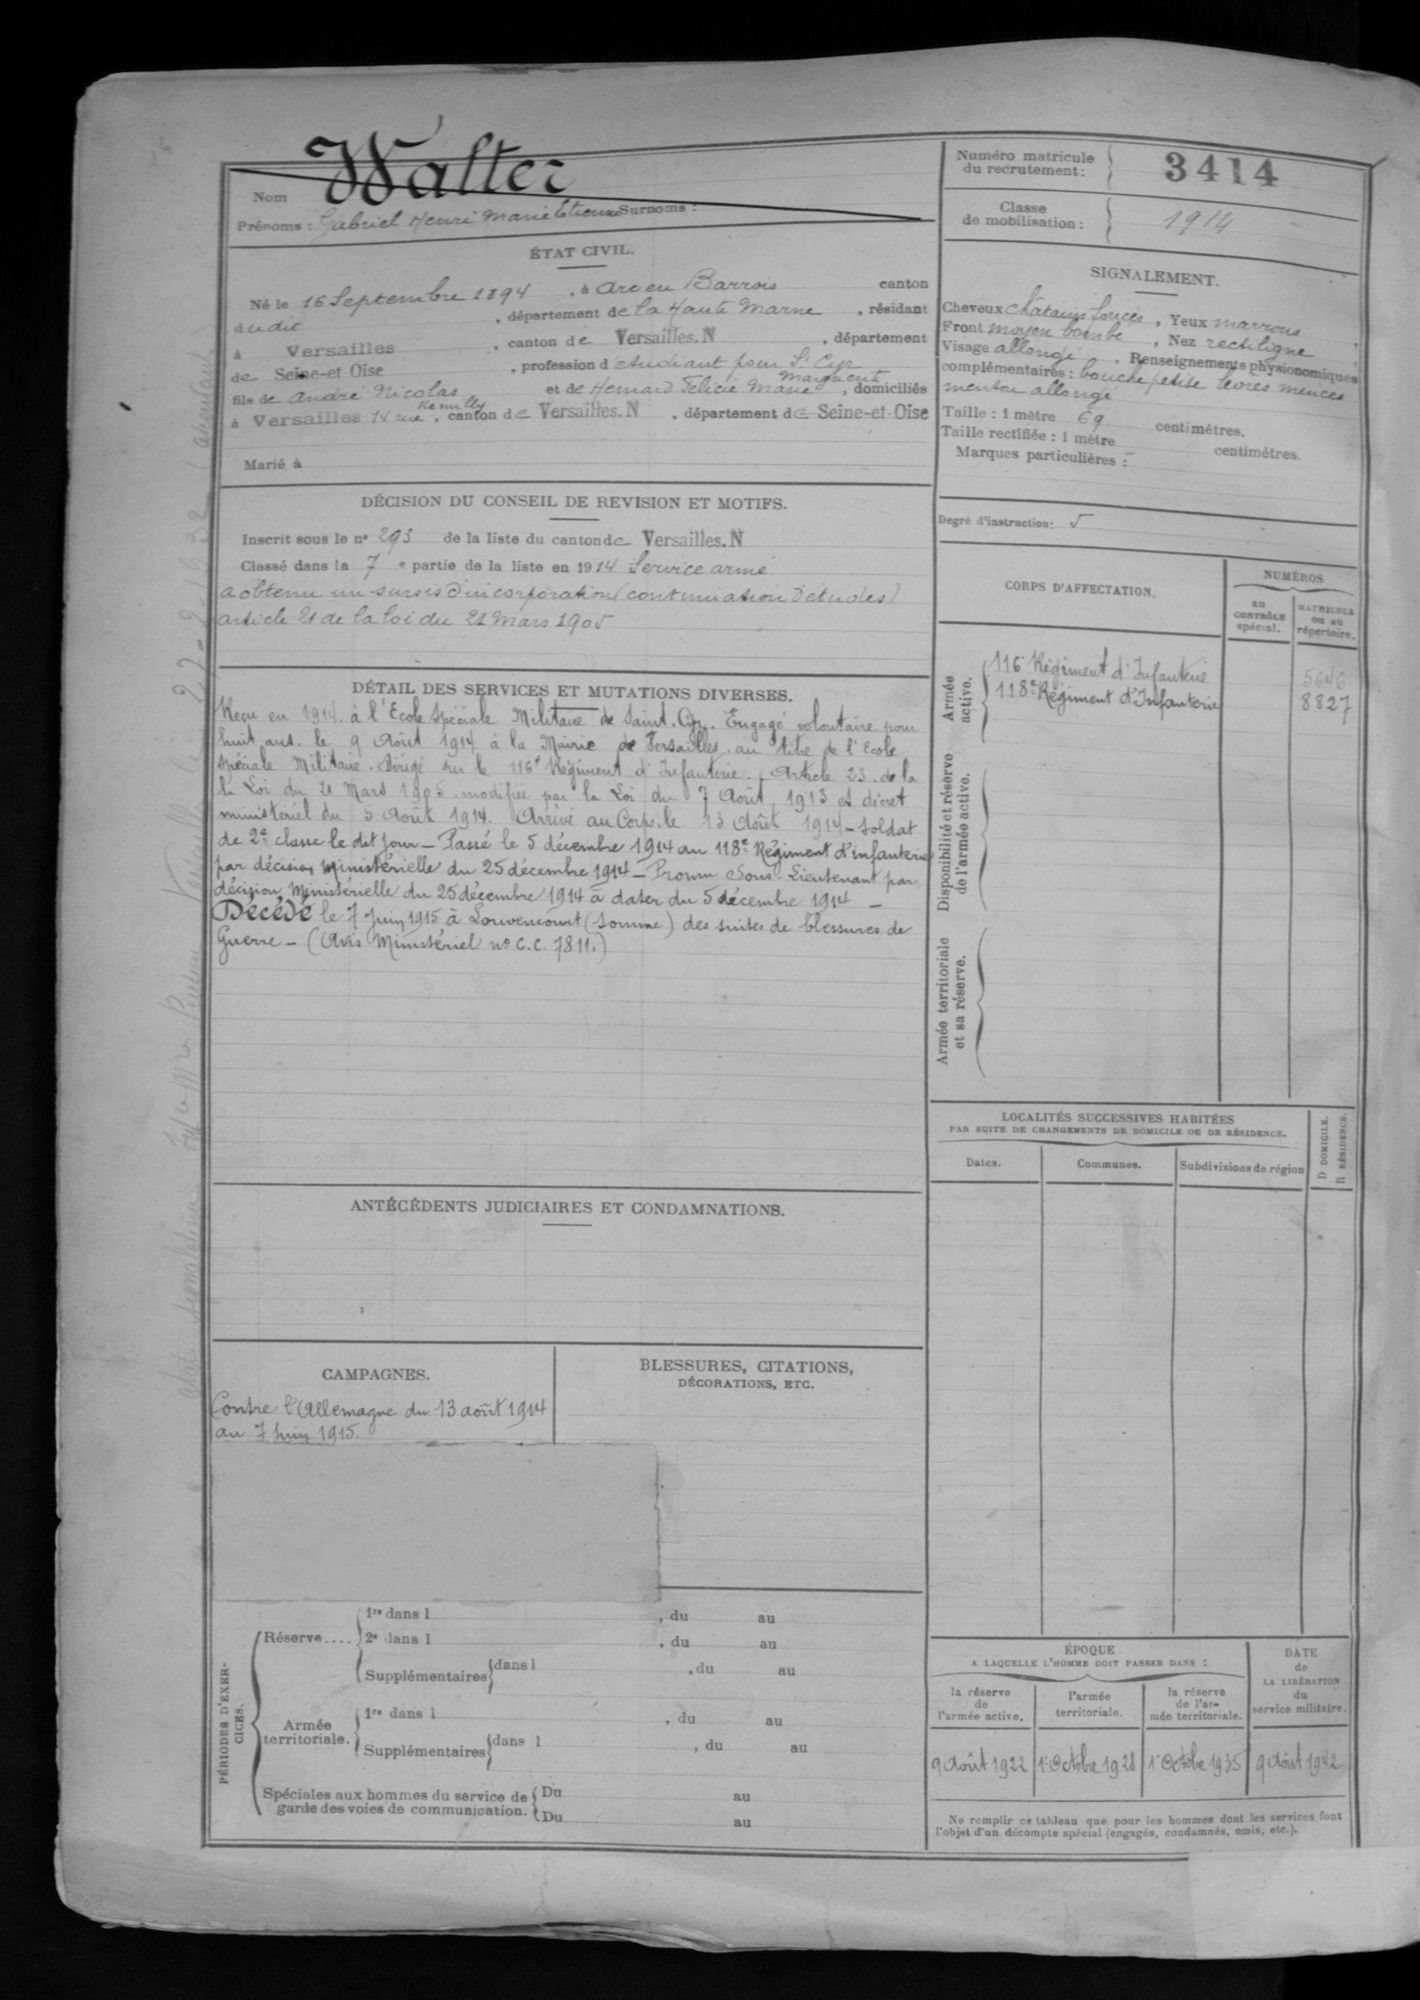 Walter
Nom
Prénoms : Gabriel Henri Marie Etienne Surnoms :
Numéro matricule du recrutement : 3414
Classe de mobilisation : 1914
ÉTAT CIVIL.
Né le 16 Septembre 1894, à Arc en Barrois canton
dudit, département de la Haute Marne, résidant
à Versailles, canton de Versailles. N, département
de Seine-et-Oise, profession d'étudiant pour St Cyr
fils de André Nicolas et de Hernard Félicie Marie Marguerite, domiciliés
à Versailles 14 rue Remilly, canton de Versailles. N, département de Seine-et-Oise
Marié à
SIGNALEMENT.
Cheveux châtains foncés, Yeux marrons
Front moyen bombé, Nez rectiligne,
Visage allongé, Renseignements physionomiques
complémentaires : bouche petite lèvres minces
menton allongé
Taille : 1 mètre 69 centimètres.
Taille rectifiée : 1 mètre centimètres.
Marques particulières :
Degré d'instruction : 5
DÉCISION DU CONSEIL DE REVISION ET MOTIFS.
Inscrit sous le n° 293 de la liste du canton de Versailles. N
Classé dans la 7e partie de la liste en 1914 Service armé
a obtenu un sursis d'incorporation (continuation d'études)
article 21 de la loi du 21 Mars 1905
DÉTAIL DES SERVICES ET MUTATIONS DIVERSES.
Reçu en 1914 à l'Ecole Spéciale Militaire de Saint. Cyr. Engagé volontaire pour
huit ans. le 9 Août 1914 à la Mairie de Versailles. au titre de l'Ecole
Spéciale Militaire. Dirigé sur le 116e Régiment d'Infanterie. Article 23. de la
la Loi du 21 Mars 1905. modifiée par la Loi du 7 Août 1913 et décret
ministériel du 5 Août 1914. Arrivé au Corps. le 13 Août 1914 – Soldat
de 2e classe le dit jour – Passé le 5 décembre 1914 au 118e Régiment d'infanterie
par décision Ministérielle du 25 décembre 1914 – Promu Sous-Lieutenant par
décision Ministérielle du 25 décembre 1914 à dater du 5 décembre 1914 –
Décédé le 7 Juin 1915 à Louvencourt (Somme) des suites de blessures de
Guerre – (Avis Ministériel n° C.C. 7811.)
CORPS D'AFFECTATION.
NUMÉROS
AU CONTRÔLE spécial.
MATRICULE ou au répertoire.
Armée active.
116e Régiment d'Infanterie 5646
118e Régiment d'Infanterie 8827
Disponibilité et réserve de l'armée active.
Armée territoriale et sa réserve.
LOCALITÉS SUCCESSIVES HABITÉES
PAR SUITE DE CHANGEMENTS DE DOMICILE OU DE RÉSIDENCE.
Dates. Communes. Subdivisions de région
D DOMICILE.
R RÉSIDENCE.
ANTÉCÉDENTS JUDICIAIRES ET CONDAMNATIONS.
CAMPAGNES.
Contre l'Allemagne du 13 août 1914
au 7 Juin 1915.
BLESSURES, CITATIONS,
DÉCORATIONS, ETC.
PÉRIODES D'EXERCICES.
Réserve.... 1re dans l , du au
2e dans l , du au
Supplémentaires dans l , du au
Armée territoriale. 1re dans l , du au
Supplémentaires dans l , du au
Spéciales aux hommes du service de
garde des voies de communication.
Du au
Du au
ÉPOQUE
A LAQUELLE L'HOMME DOIT PASSER DANS :
la réserve de l'armée active.
l'armée territoriale.
la réserve de l'armée territoriale.
DATE de LA LIBÉRATION du service militaire.
9 Août 1922 1er Octobre 1928 1er Octobre 1935 9 Août 1942
Ne remplir ce tableau que pour les hommes dont les services font
l'objet d'un décompte spécial (engagés, condamnés, omis, etc.).